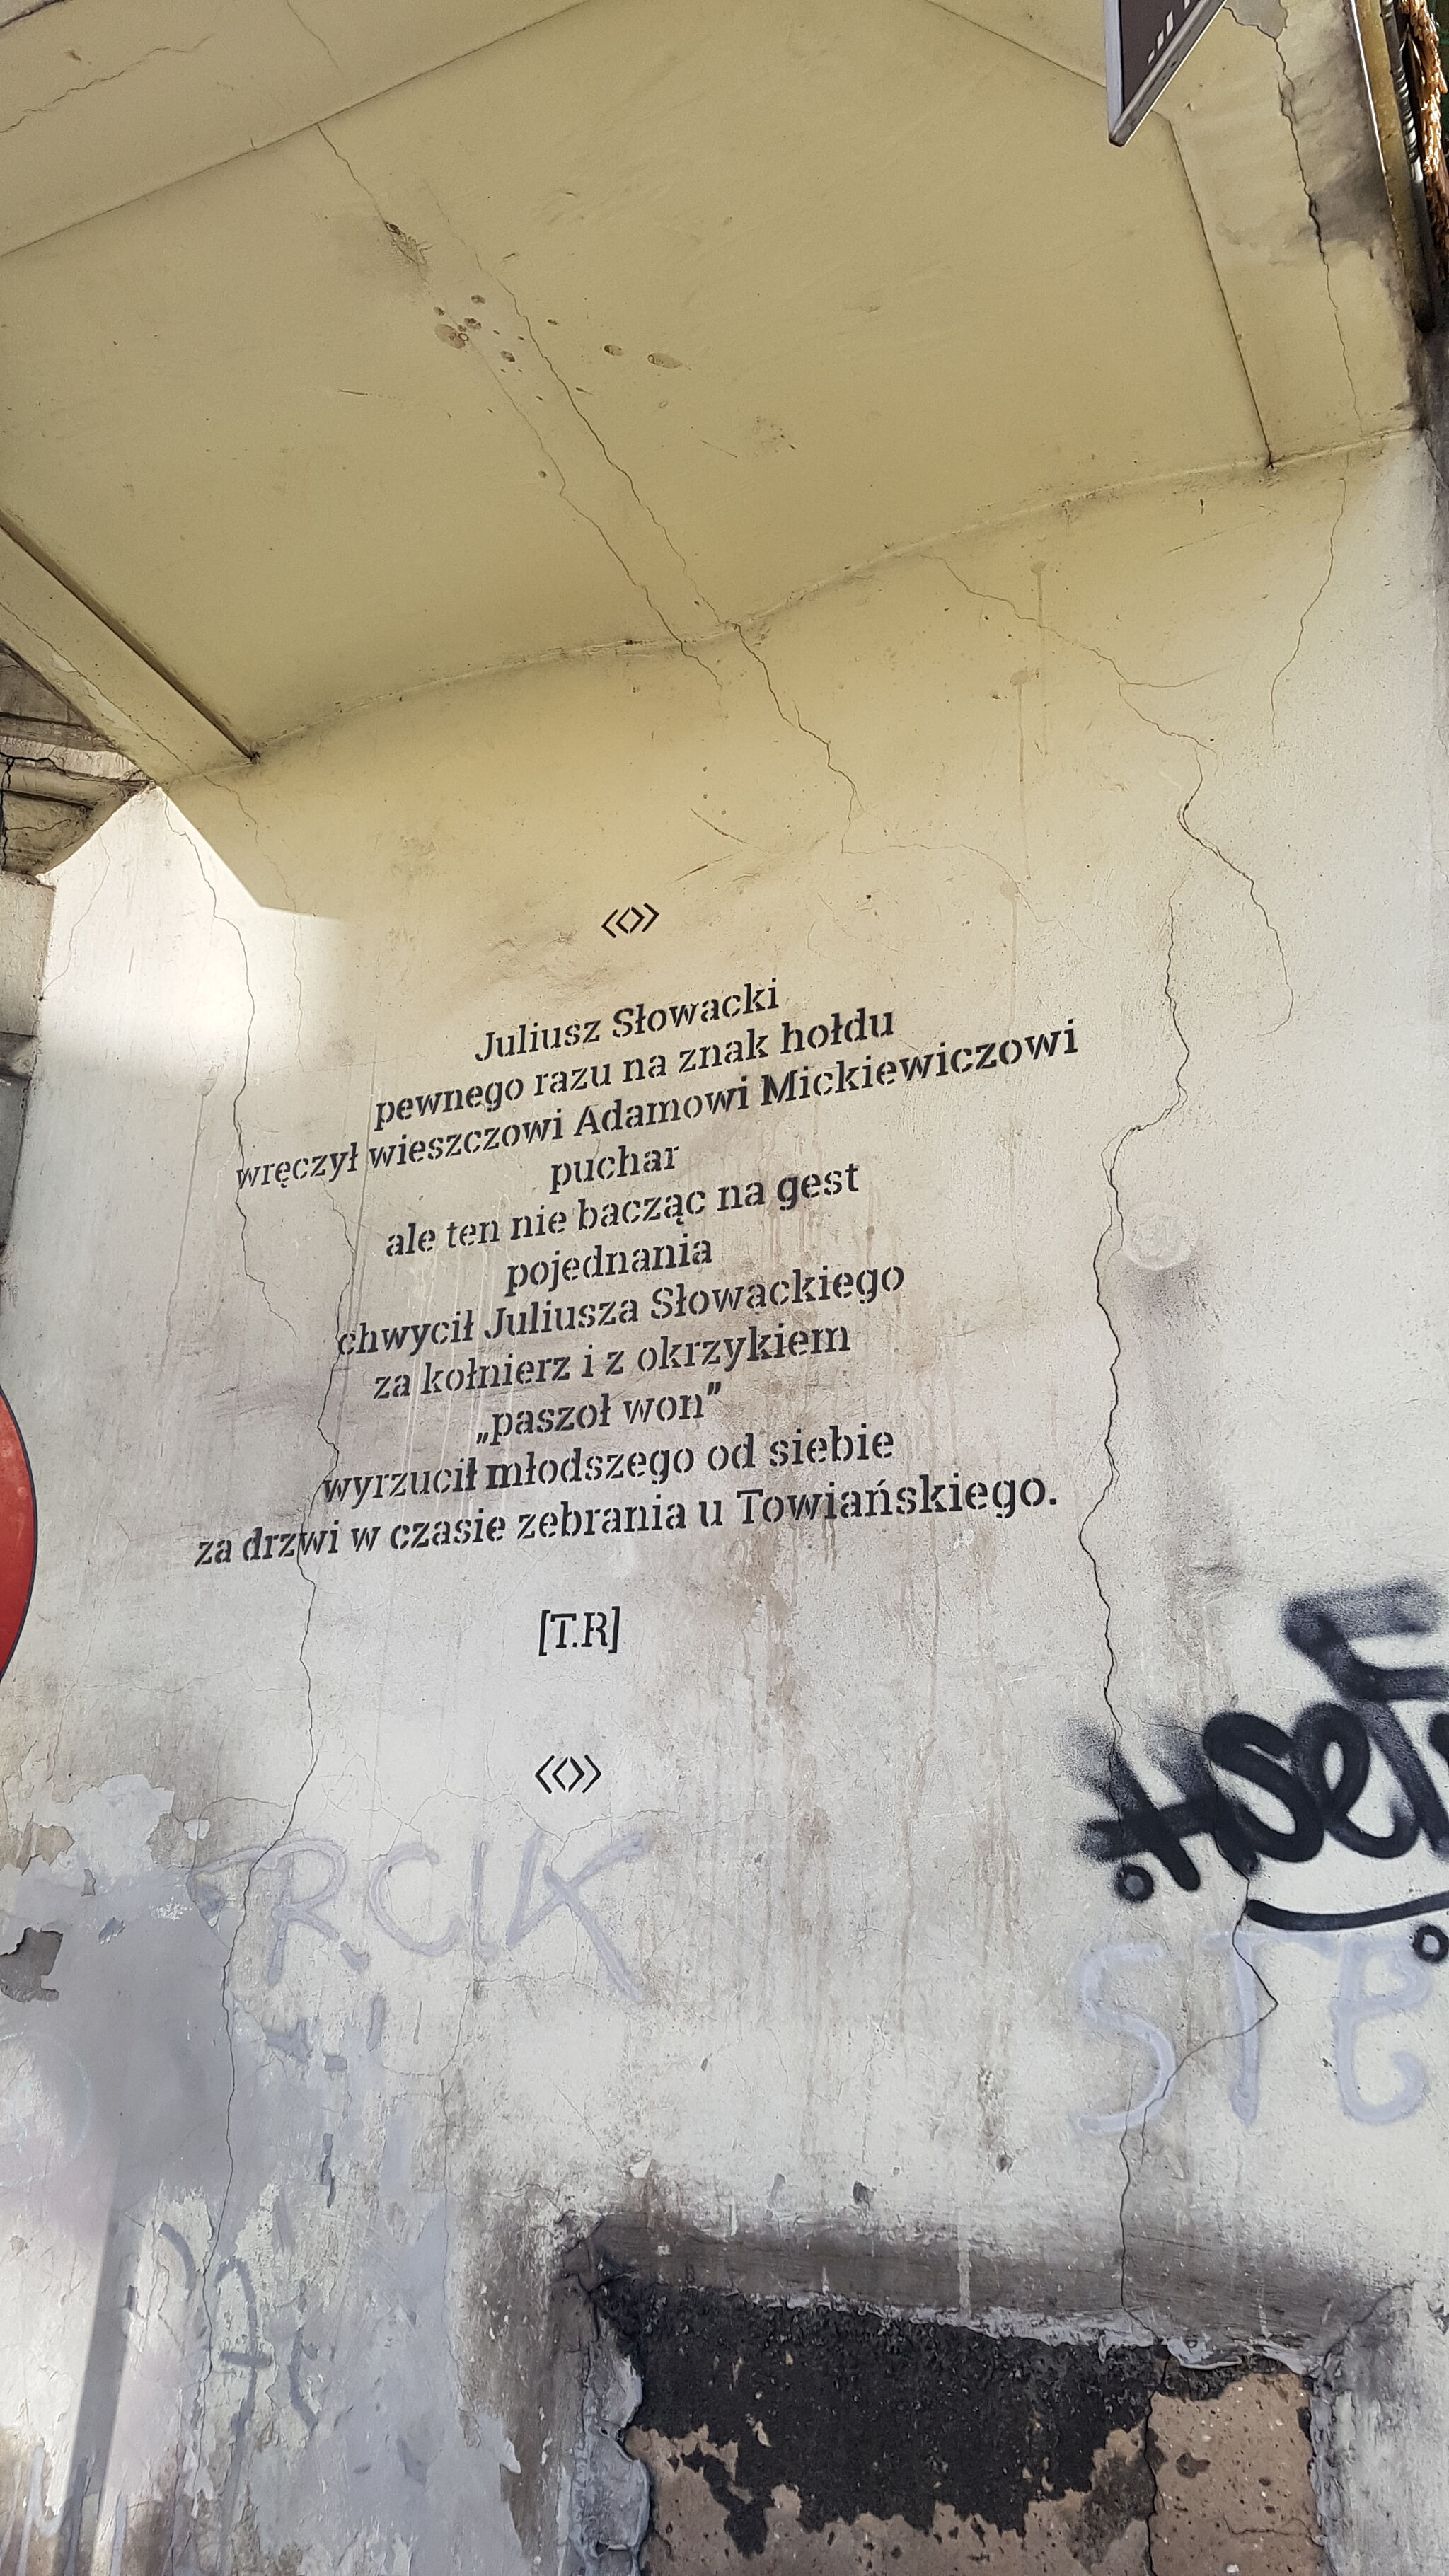 Juliusz Słowacki
pewnego razu na znak hołdu
wręczył wieszczowi Adamowi Mickiewiczowi
puchar
ale ten nie bacząc na gest
pojednania
chwycił Juliusza Słowackiego
za kołnierz i z okrzykiem
„paszoł won”
wyrzucił młodszego od siebie
za drzwi w czasie zebrania u Towiańskiego.
[T.R]
RCIK